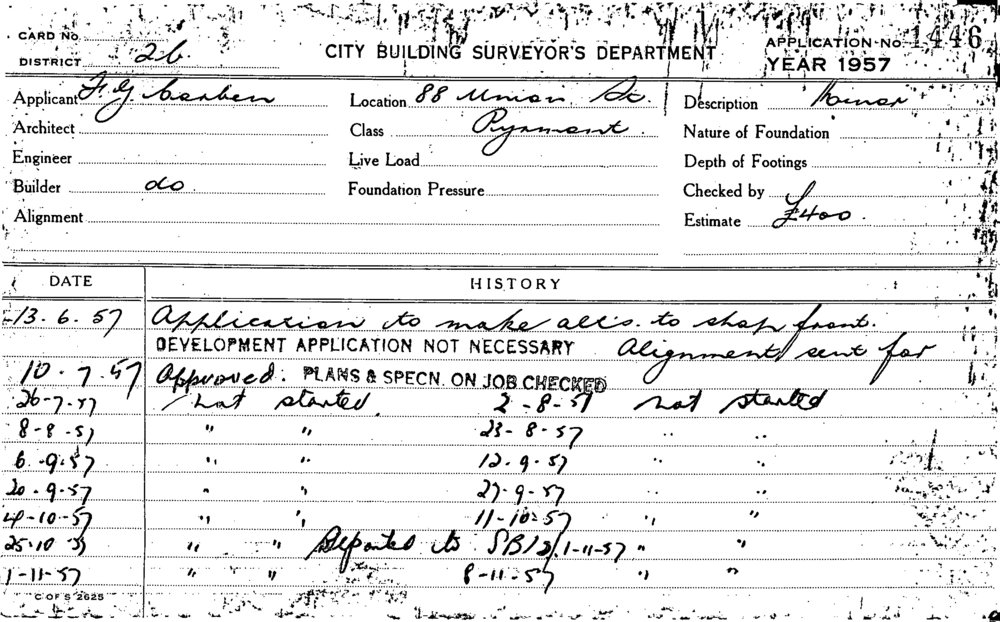 CARD No.
DISTRICT 26
CITY BUILDING SURVEYOR'S DEPARTMENT
APPLICATION No. 1446
YEAR 1957
Applicant F. G. Location 88 Union St. Description Minor
Architect Class Pyrmont Nature of Foundation
Engineer Live Load Depth of Footings
Builder do Foundation Pressure Checked by
Alignment Estimate £400
DATE HISTORY
13.6.57 Application to make alt's. to shop front.
DEVELOPMENT APPLICATION NOT NECESSARY Alignment sent for
10.7.57 Approved. PLANS & SPECN. ON JOB CHECKED
26-7-57 Not started 2-8-57 Not started
8-8-57 " " 23-8-57 " "
6.9.57 " " 12.9.57 " "
20.9.57 " " 27-9-57 " "
4-10-57 " " 11-10-57 " "
25.10.57 " " Reported to 1-11-57 " "
1-11-57 " " 8-11-57 " "
C OF S 2625